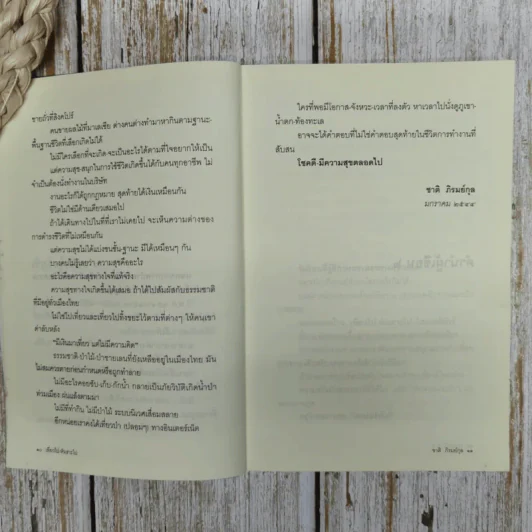 ขายถั่วที่สิงคโปร์
คนขายผลไม้ที่มาเลเซีย ต่างคนต่างทำมาหากินตามฐานะ-
พื้นฐานชีวิตที่เลือกเกิดไม่ได้
ไม่มีใครเลือกที่จะเกิด-จะเป็นอะไรได้ตามที่ใจอยากให้เป็น
แต่ความสุข-สนุกในการใช้ชีวิตเกิดขึ้นได้กับคนทุกอาชีพ ไม่
จำเป็นต้องนั่งทำงานในบริษัท
งานอะไรก็ได้ถูกกฎหมาย สุดท้ายได้เงินเหมือนกัน
ชีวิตไม่ใช่มีด้านเดียวเสมอไป
ถ้าได้เดินทางไปในที่ที่เราไม่เคยไป จะเห็นความต่างของ
การดำรงชีวิตที่ไม่เหมือนกัน
แต่ความสุขไม่ได้แบ่งชนชั้น-ฐานะ มีได้เหมือนๆ กัน
บางคนไม่รู้เลยว่า ความสุขคืออะไร
อะไรคือความสุขทางใจที่แท้จริง
ความสุขทางใจเกิดขึ้นได้เสมอ ถ้าได้ไปสัมผัสกับธรรมชาติ
ที่มีอยู่ทั่วเมืองไทย
ไม่ใช่ไปเที่ยวและเที่ยวไปทิ้งขยะไว้ตามที่ต่างๆ ให้คนเขา
ด่าลับหลัง
“มีเงินมาเที่ยว แต่ไม่มีความคิด”
ธรรมชาติ-ป่าไม้-ป่าชายเลนที่ยังเหลืออยู่ในเมืองไทย มัน
ไม่สมควรตายก่อนกำหนดหรือถูกทำลาย
ไม่มีอะไรคอยซับ-เก็บ-กักน้ำ กลายเป็นภัยวิบัติเกิดน้ำป่า
ท่วมเมือง ฝนแล้งตามมา
ไม่มีที่ทำกิน ไม่มีป่าไม้ ระบบนิเวศเสื่อมสลาย
อีกหน่อยเราคงได้เที่ยวป่า (ปลอมๆ) ทางอินเตอร์เน็ต
ใครที่พอมีโอกาส-จังหวะ-เวลาที่ลงตัว หาเวลาไปนั่งดูภูเขา-
น้ำตก-ท้องทะเล
อาจจะได้คำตอบที่ไม่ใช่คำตอบสุดท้ายในชีวิตการทำงานที่
สับสน
โชคดี-มีความสุขตลอดไป
ชาติ ภิรมย์กุล
มกราคม ๒๕๔๔
ชาติ ภิรมย์กุล ๑๑